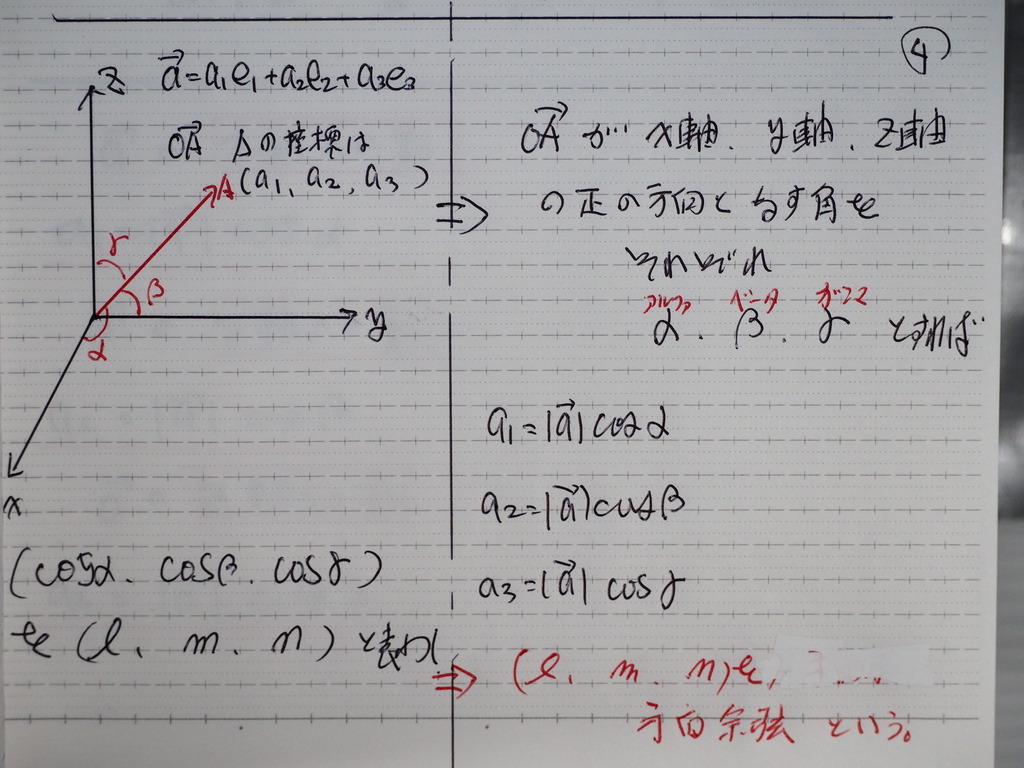 ④
z
a⃗=a₁e₁+a₂e₂+a₃e₃
OA⃗ Aの座標は
A(a₁、a₂、a₃)
γ
β
α
y
x
(cosα、cosβ、cosγ)
を(l、m、n)と表わし
⇒ OA⃗が x軸、y軸、z軸
の正の方向となす角を
それぞれ
アルファ ベータ ガンマ
α、β、γ とすれば
a₁=|a⃗|cosα
a₂=|a⃗|cosβ
a₃=|a⃗|cosγ
⇒ (l、m、n)を、
方向余弦 という。